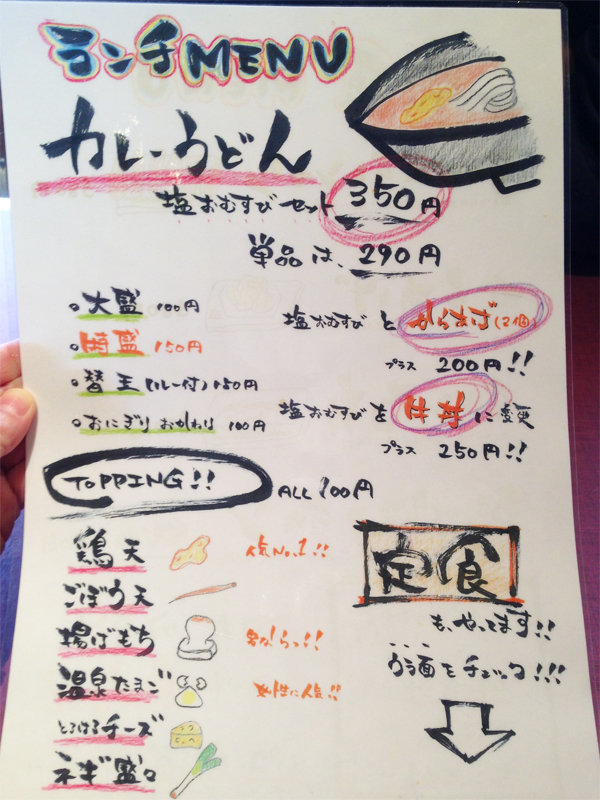 ランチMENU
カレーうどん
塩おむすびセット 350円
単品は、290円
。大盛 100円
。特盛 150円
。替玉(カレー付) 150円
。おにぎりおかわり 100円
塩おむすびとからあげ(2個)
プラス 200円!!
塩おむすびを牛丼に変更
プラス 250円!!
TOPPING!! ALL 100円
鶏天 人気No.1!!
ごぼう天
揚げもち 男なら っ!!
温泉たまご 女性に人気!!
とろけるチーズ
ネギ盛。
定食
も、やってます!!
うら面をチェック!!!